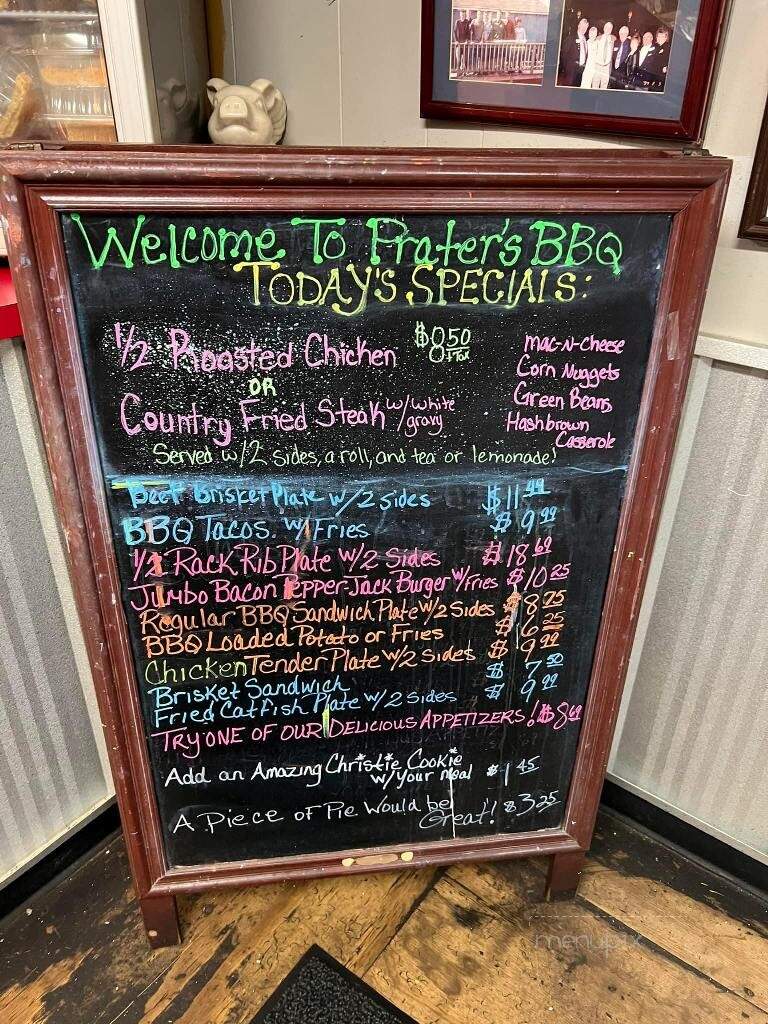 Welcome To Prater's BBQ
TODAY'S SPECIALS:
1/2 Roasted Chicken $8.50 + Tax
OR
Country Fried Steak w/white gravy
Mac-N-Cheese
Corn Nuggets
Green Beans
Hashbrown
Casserole
Served w/2 sides, a roll, and tea or lemonade!
Beef Brisket Plate w/2 sides $11.99
BBQ Tacos. w/Fries $9.99
1/2 Rack Rib Plate w/2 Sides $18.69
Jumbo Bacon Pepper-Jack Burger w/Fries $10.25
Regular BBQ Sandwich Plate w/2 Sides $8.75
BBQ Loaded Potato or Fries $6.25
Chicken Tender Plate w/2 sides $9.99
Brisket Sandwich $7.50
Fried Catfish Plate w/2 sides $9.99
TRY ONE OF OUR DELICIOUS APPETIZERS! $8.69
Add an Amazing Christie Cookie
w/your meal $1.45
A Piece of Pie Would be
Great! $3.25
menupix